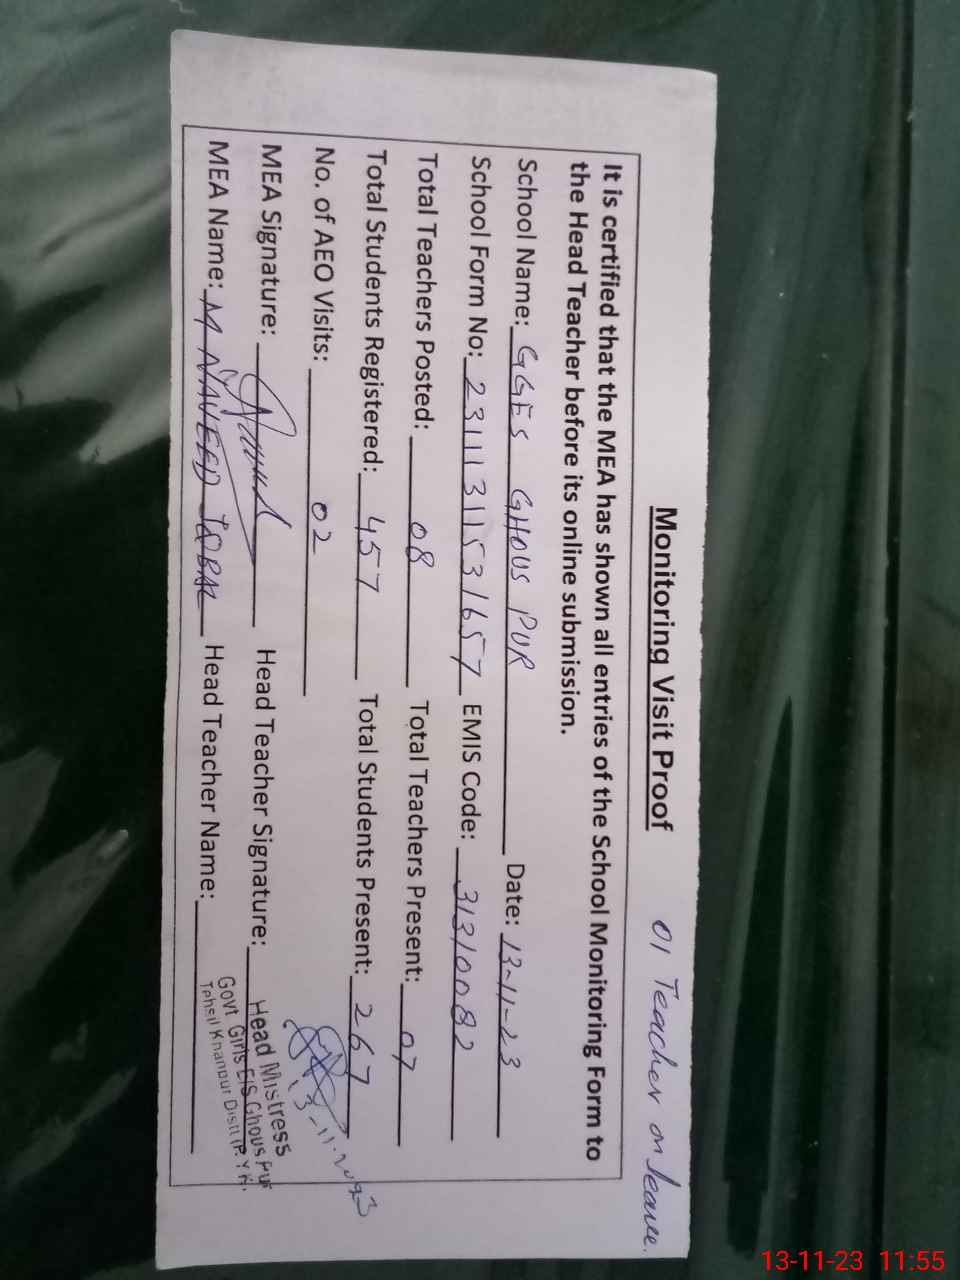 Monitoring Visit Proof
01 Teacher on leave.
It is certified that the MEA has shown all entries of the School Monitoring Form to
the Head Teacher before its online submission.
School Name: GGES GHOUS PUR Date: 13-11-23
School Form No: 23111311531657 EMIS Code: 31310082
Total Teachers Posted: 08 Total Teachers Present: 07
Total Students Registered: 457 Total Students Present: 267
No. of AEO Visits: 02
MEA Signature: Head Teacher Signature:
13-11-2023
MEA Name: M NAVEED IQBAL Head Teacher Name:
Head Mistress
Govt Girls E/S Ghous Pur
Tehsil Khanpur Distt (R.Y.K).
13-11-23 11:55